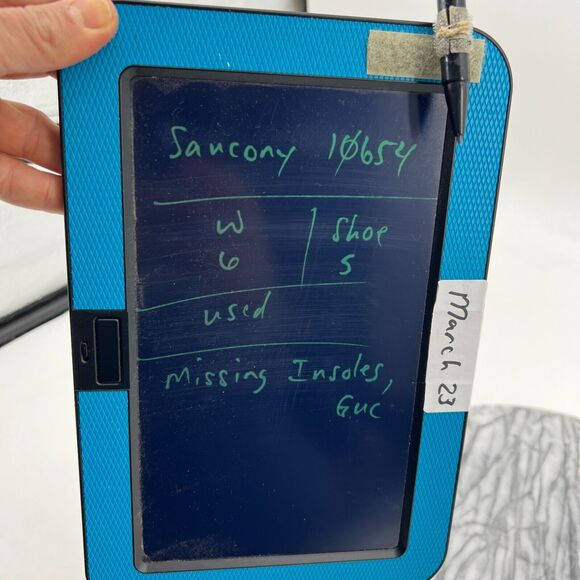 Saucony 10654
W | Shoe
6 | S
used
Missing Insoles,
GUC
March 23